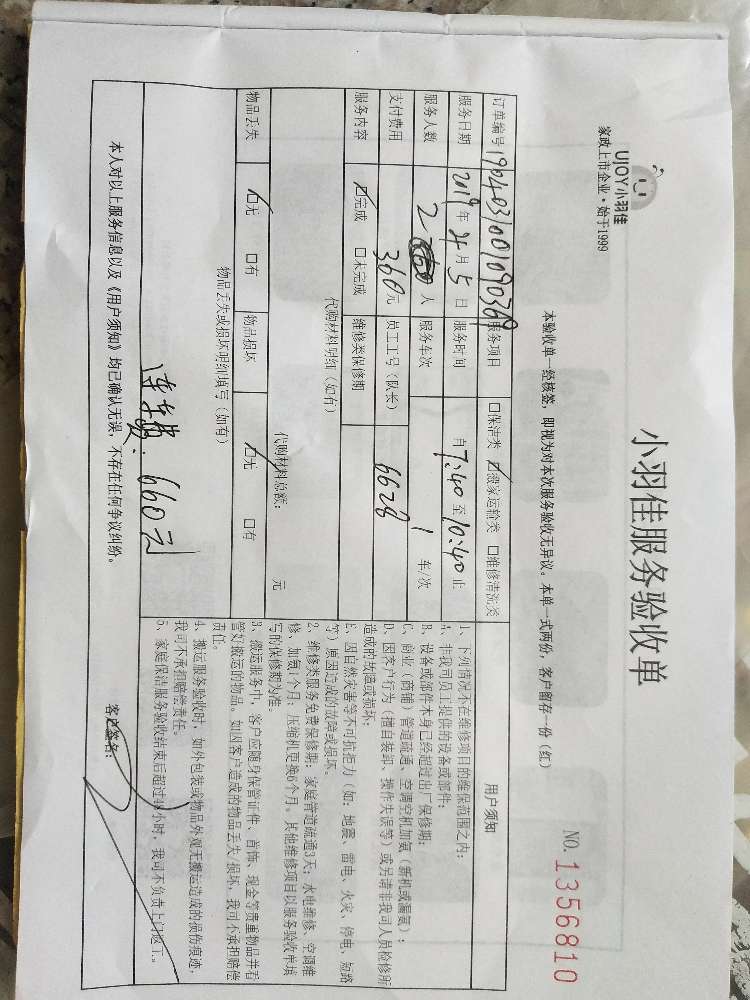 UJOY小羽佳
家政上市企业·始于1999
小羽佳服务验收单
NO. 1356810
本验收单一经核签，即视为对本次服务验收无异议。本单一式两份，客户留存一份（红）
订单编号 190403100109036 服务项目 □保洁类 ☑搬家运输类 □维修清洗类
服务日期 2019年4月5日 服务时间 自7:40至10:40止
服务人数 2 人 服务车次 1 车/次
支付费用 360元 员工工号（队长） 6628
服务内容 ☑完成 □未完成 维修类保修期
代购材料明细（如有）
代购材料总额： 元
物品丢失 ☑无 □有 物品损坏 ☑无 □有
物品丢失或损坏明细填写（如有）
660元
用户须知
1、下列情况不在维修项目的维保范围之内：
A、非我司员工提供的设备或部件；
B、设备或部件本身已经超过出厂保修期；
C、商业（商铺）管道疏通、空调空机加氨（新机或漏氨）；
D、因客户行为（擅自装卸、操作失误等）或另请非我司人员检修所
造成的故障或损坏；
E、因自然灾害等不可抗拒力（如：地震、雷电、火灾、停电、短路
等）原因造成的故障或损坏。
2、维修类服务免费保修期：家庭管道疏通3天；水电维修、空调维
修、加氨1个月；压缩机更换6个月。其他维修项目以服务验收单填
写的保修期为准。
3、搬运服务中，客户应随身保管证件、首饰、现金等贵重物品并看
管好搬运的物品。如因客户造成的物品丢失、损坏，我司不承担赔偿
责任。
4、搬运服务验收时，如外包装或物品外观无搬运造成的损伤痕迹，
我司不承担赔偿责任。
5、家庭保洁服务验收结束后超过48小时，我司不负责上门返工。
本人对以上服务信息以及《用户须知》均已确认无误，不存在任何争议纠纷。 客户签名：